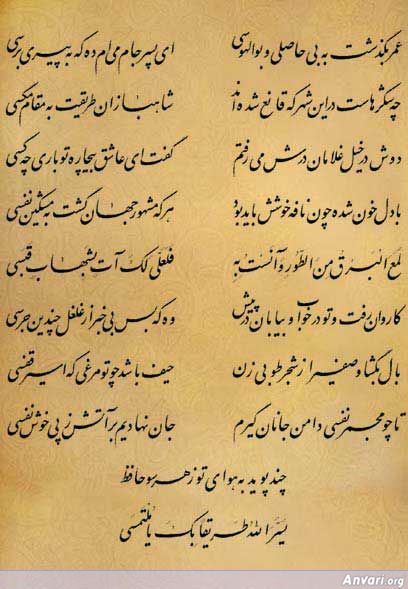 عمر بگذشت به بی حاصلی و بوالهوسی ای پسر جام می ام ده که به پیری برسی
چه شکرهاست در این شهر که قانع شده اند شاهبازان طریقت به مقام مگسی
دوش در خیل غلامان درش می رفتم گفت ای عاشق بیچاره تو باری چه کسی
با دل خون شده چون نافه خوشش باید بود هر که مشهور جهان گشت به مشکین نفسی
لمع البرق من الطور و آنست به فلعلی لک آت بشهاب قبسی
کاروان رفت و تو در خواب و بیابان در پیش وه که بس بی خبر از غلغل چندین جرسی
بال بگشا و صفیر از شجر طوبی زن حیف باشد چو تو مرغی که اسیر قفسی
تا چو مجمر نفسی دامن جانان گیرم جان نهادیم بر آتش ز پی خوش نفسی
چند پوید به هوای تو ز هر سو حافظ
یسر الله طریقا بک یا ملتمسی
Anvari.org